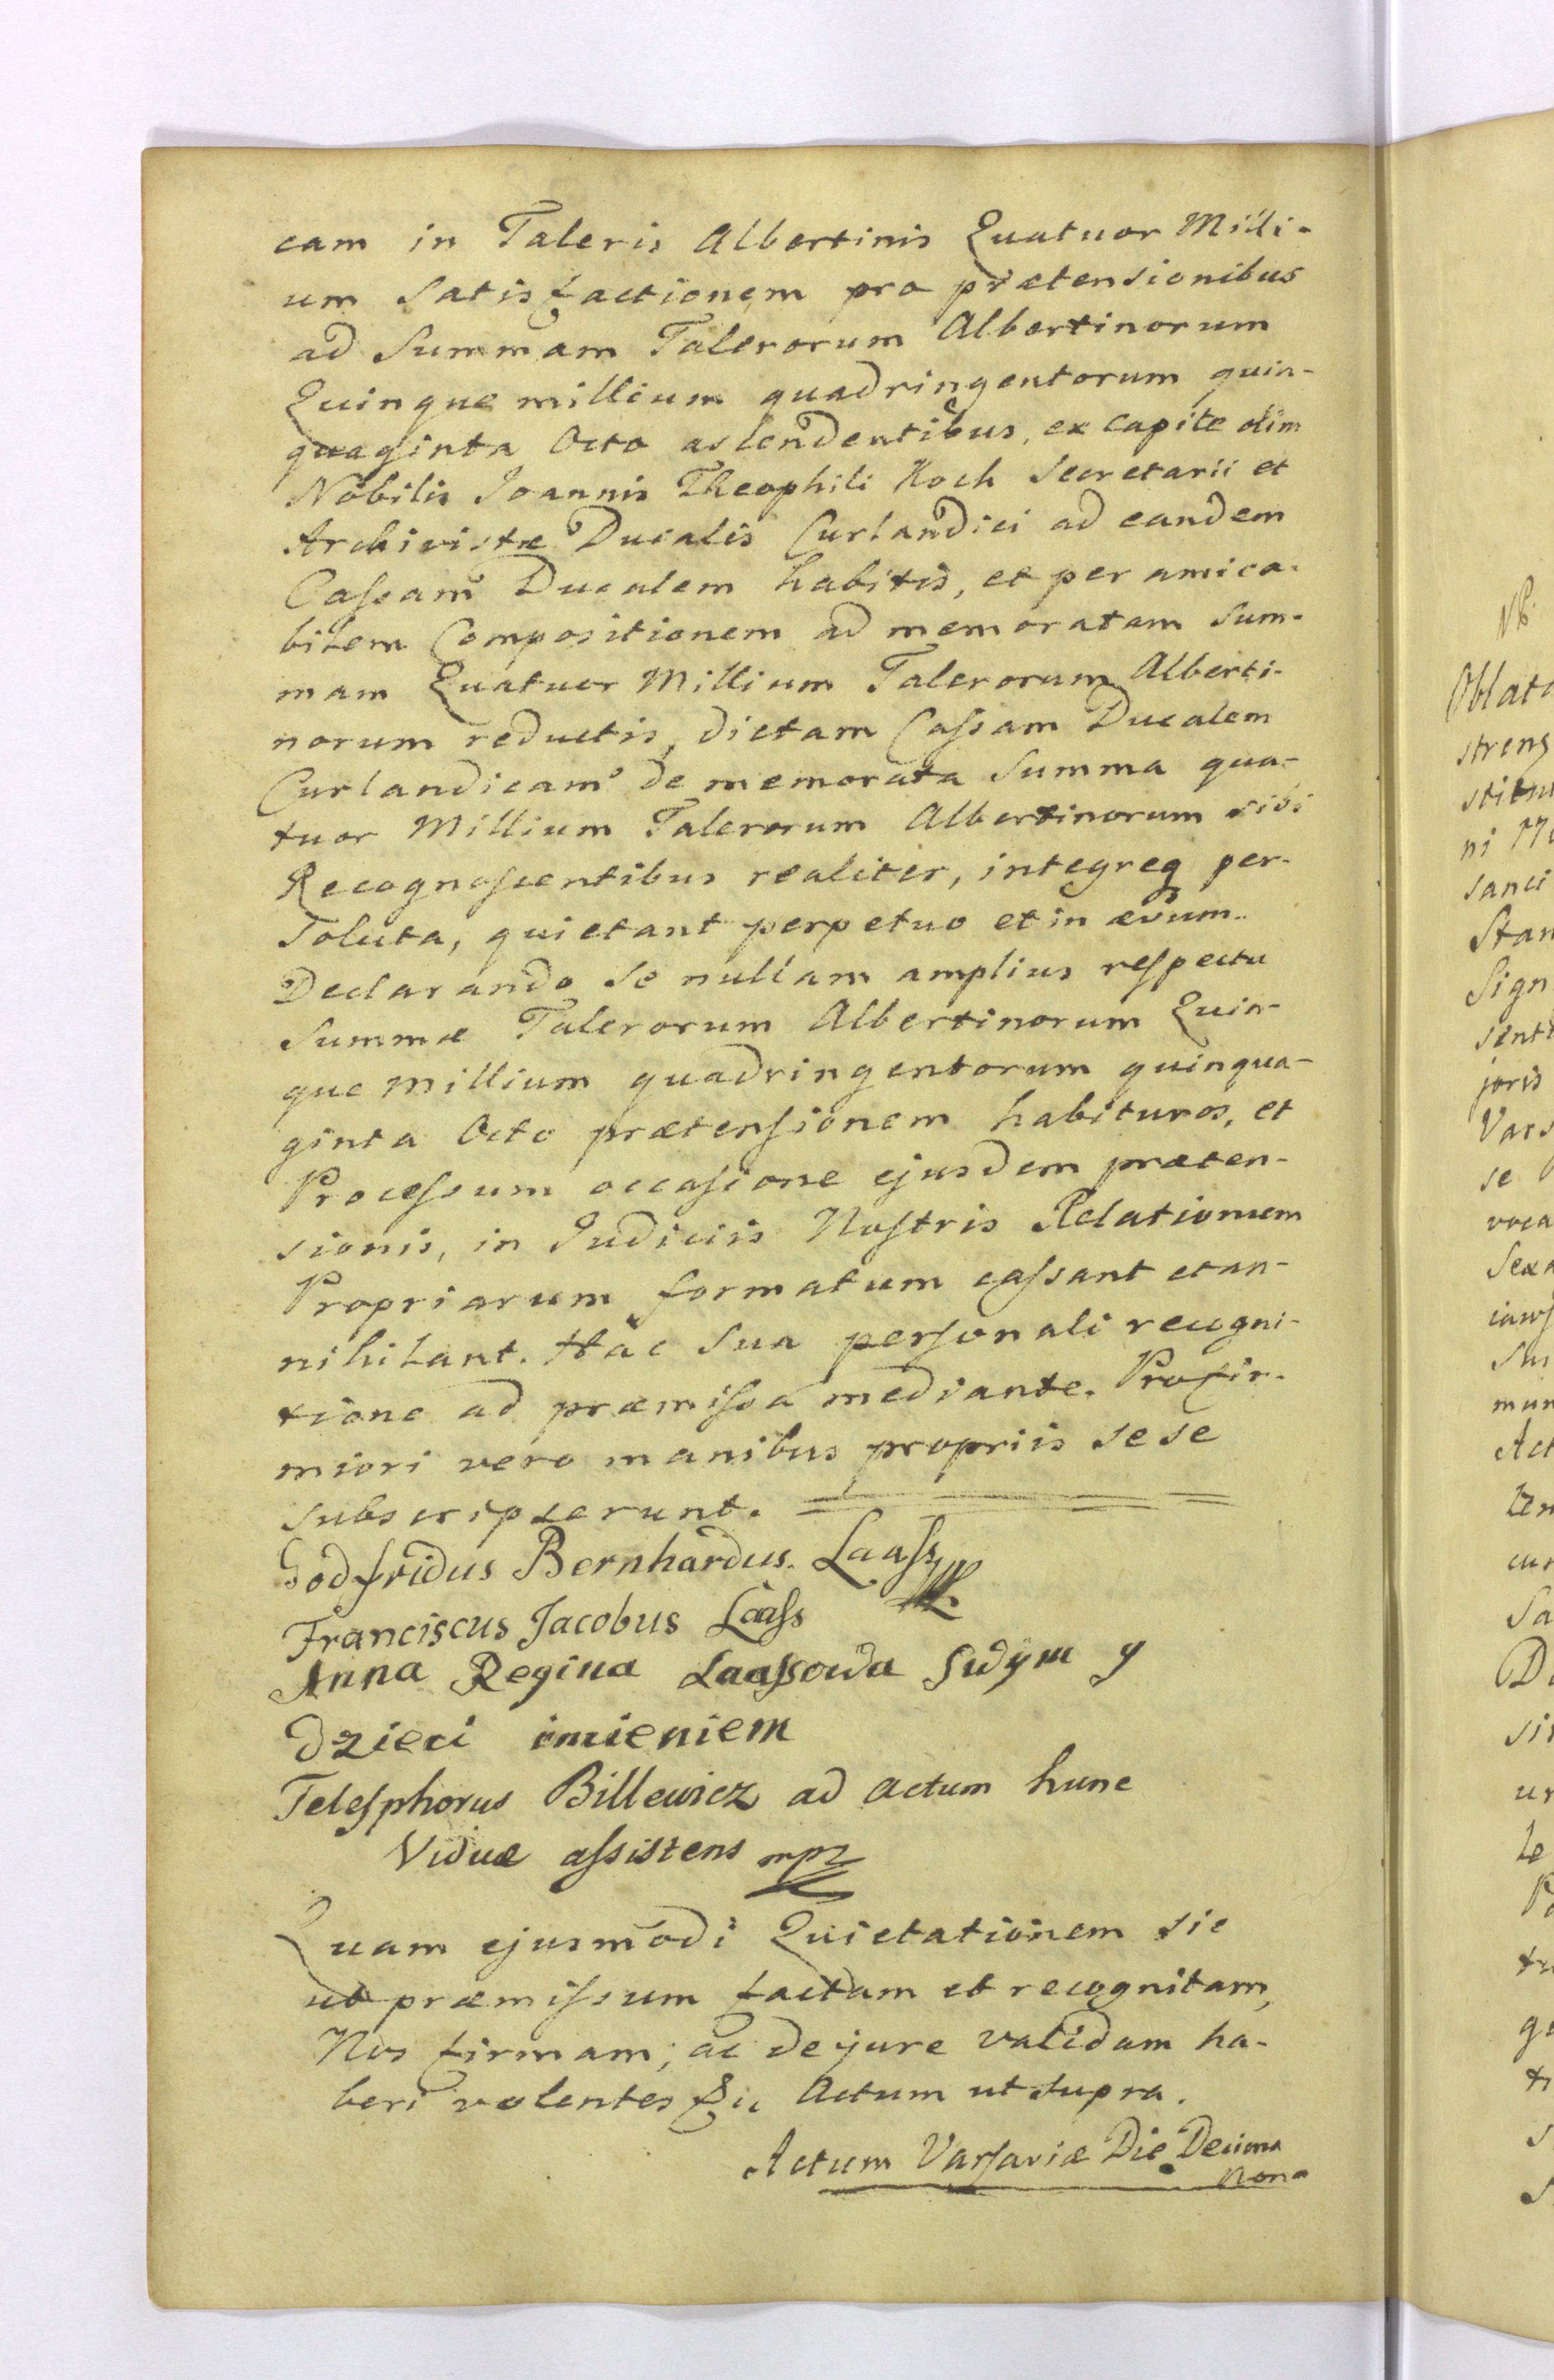 cam in Taleris Albertinis Quatuor Milli-
um Satisfactionem pro prætensionibus
ad Summam Talerorum Albertinorum
Quinque millium quadringentorum quin-
quaginta Octo ascendentibus, ex capite olim
Nobilis Joannis Theophili Koch Secretarii et
Archivistæ Ducalis Curlandici ad eandem
Caſsam Ducalem habitis, et per amica-
bilem Compositionem ad memoratam Sum-
mam Quatuor Millium Talerorum Alberti-
norum reductis, dictam Caſsam Ducalem
Curlandicam de memorata Summa qua-
tuor Millium Talerorum Albertinorum sibi
Recognoſcentibus realiter, integreq per-
Soluta, quietant perpetuo et in ævum.
Declarando Se nullam amplius reſpectu
Summæ Talerorum Albertinorum Quin-
que millium quadringentorum quinqua-
ginta Octo prætenſionem habituros, et
Proceſsum occaſione ejusdem præten-
sionis, in Judiciis Noſtris Relationum
Propriarum formatum caſsant et an-
nihilant. Hac Sua perſonali recogni-
tione ad præmiſsa mediante. Pro fir-
miori vero manibus propriis sese
subscripserunt.
Godfridus Bernhardus Laaſs
Franciscus Jacobus Laaſs
Anna Regina Laaſsowa Swym y
dzieci imieniem
Teleſphorus Billewicz ad actum hunc
Viduæ aſsistens mpr
Quam ejusmodi Quietationem sic
ut præmiſsum factam et recognitam,
Nos firmam, ac de jure validam ha-
beri volentes &c Actum ut supra.
Actum Varſaviæ Die Decima
Nona
Oblata
Sign